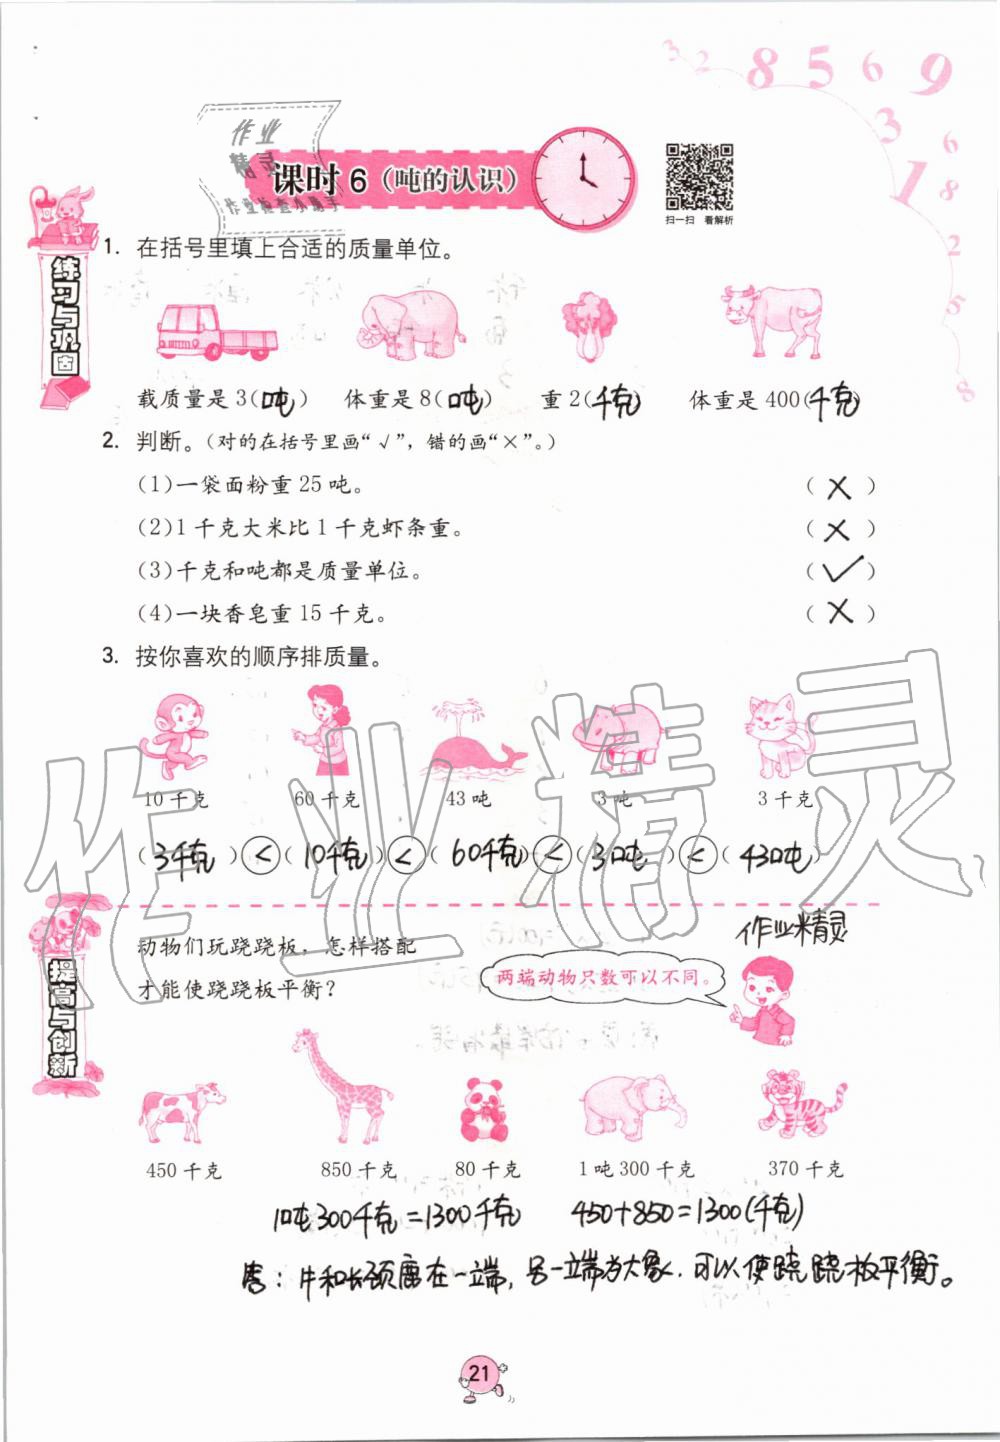 3 2 8 5 6 9
3 1 6 8 2 5 8
作业
精灵
作业检查小帮手
课时 6（吨的认识）
扫一扫 看解析
练习与巩固
1. 在括号里填上合适的质量单位。
载质量是 3(吨) 体重是 8(吨) 重 2(千克) 体重是 400(千克)
2. 判断。(对的在括号里画“√”，错的画“×”。)
(1)一袋面粉重 25 吨。 (×)
(2)1 千克大米比 1 千克虾条重。 (×)
(3)千克和吨都是质量单位。 (√)
(4)一块香皂重 15 千克。 (×)
3. 按你喜欢的顺序排质量。
10 千克 60 千克 43 吨 3 吨 3 千克
(3千克)<(10千克)<(60千克)<(3吨)<(43吨)
作业精灵
提高与创新
作业精灵
动物们玩跷跷板，怎样搭配
才能使跷跷板平衡？
两端动物只数可以不同。
450 千克 850 千克 80 千克 1 吨 300 千克 370 千克
1吨300千克=1300千克 450+850=1300(千克)
答：牛和长颈鹿在一端，另一端为大象，可以使跷跷板平衡。
21